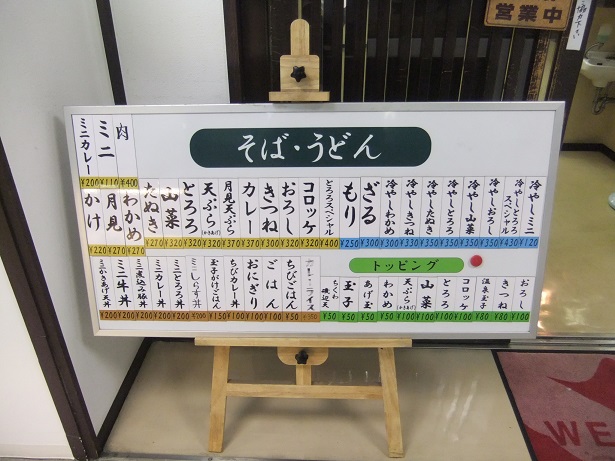 営業中
そば・うどん
冷やしミニ ¥120
冷やしとろろスペシャル ¥430
冷やしおろし ¥350
冷やし山菜 ¥350
冷やしとろろ ¥350
冷やしたぬき ¥300
冷やしきつね ¥330
冷やしわかめ ¥300
ざる ¥300
もり ¥250
とろろスペシャル ¥400
コロッケ ¥320
おろし ¥320
きつね ¥300
カレー ¥370
月見天ぷら ¥370
天ぷら(かきあげ) ¥320
とろろ ¥320
山菜 ¥320
たぬき ¥270
肉 ¥400
ミニ ¥110
ミニカレー ¥200
わかめ ¥270
月見 ¥270
かけ ¥220
トッピング
おろし ¥100
きつね ¥80
温泉玉子 ¥80
コロッケ ¥100
とろろ ¥100
山菜 ¥100
天ぷら ¥100
わかめ ¥50
あげ玉 ¥50
玉子 ¥50
ちくわ磯辺天 ¥50
ライス
ちびごはん ¥50
ごはん ¥100
おにぎり ¥100
ちびカレー丼 ¥100
玉子かけごはん ¥150
ミニしらす丼 ¥200
ミニとろろ丼 ¥200
ミニカレー丼 ¥200
ミニ煮込み豚丼 ¥200
ミニ牛丼 ¥200
ミニかきあげ天丼 ¥200
WE